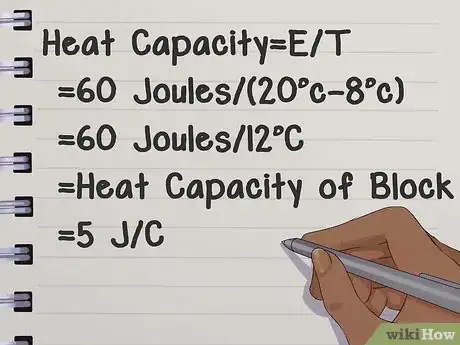 Heat Capacity=E/T
=60 Joules/(20°c-8°c)
=60 Joules/12°C
=Heat Capacity of Block
=5 J/C
wikiHow